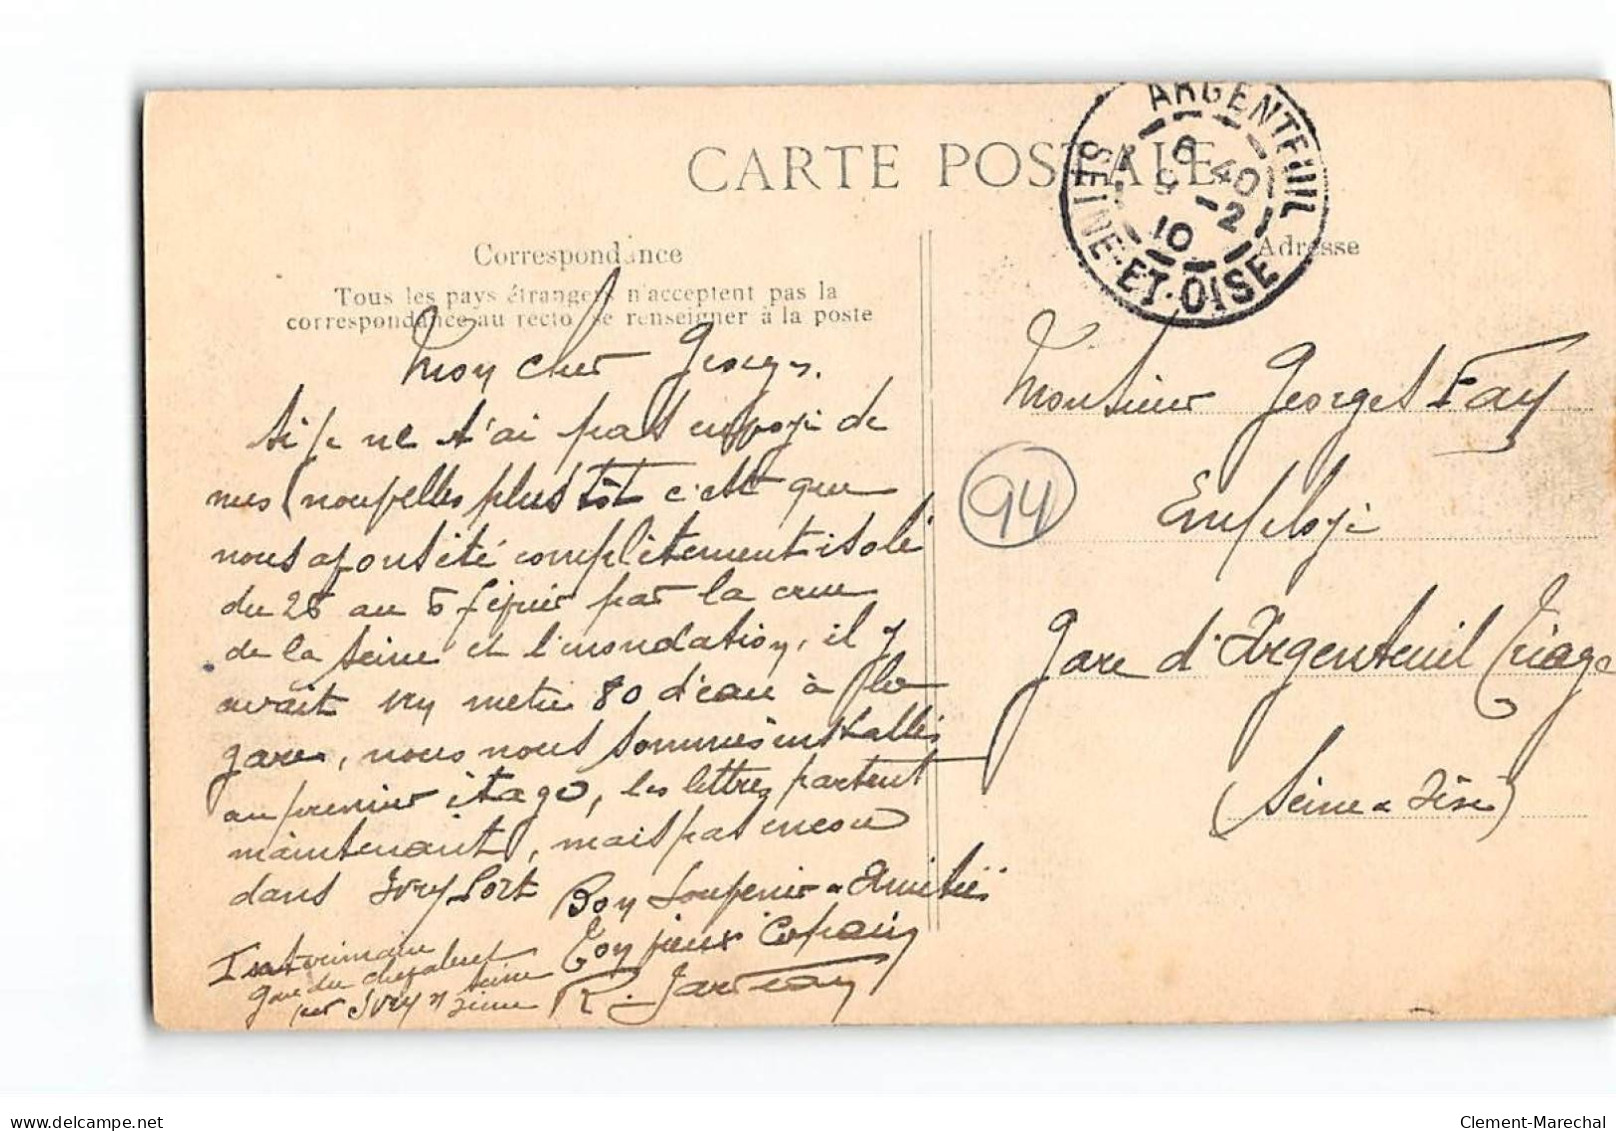 CARTE POSTALE
ARGENTEUIL
6 40
9 -2
10
SEINE-ET-OISE
Correspondance
Adresse
Tous les pays étrangers n'acceptent pas la
correspondance au recto, se renseigner à la poste
Mon cher Georges.
si je ne t'ai pas envoyé de
mes nouvelles plus tôt c'est que
nous avons été complètement isolé
du 26 au 6 février par la crue
de la Seine et l'inondation, il y
avait un mètre 80 d'eau à la
gare, nous nous sommes installés
au premier étage, les lettres partent
maintenant, mais pas encore
dans Ivry Port Bon Souvenir & Amitié
Ton vieux Copain
R.
gare du chevaleret
Ivry s/ Seine
Monsieur Georges Fay
94
Employé
Gare d'Argenteuil Triage
(Seine & Oise)
www.delcampe.net
Clement-Marechal